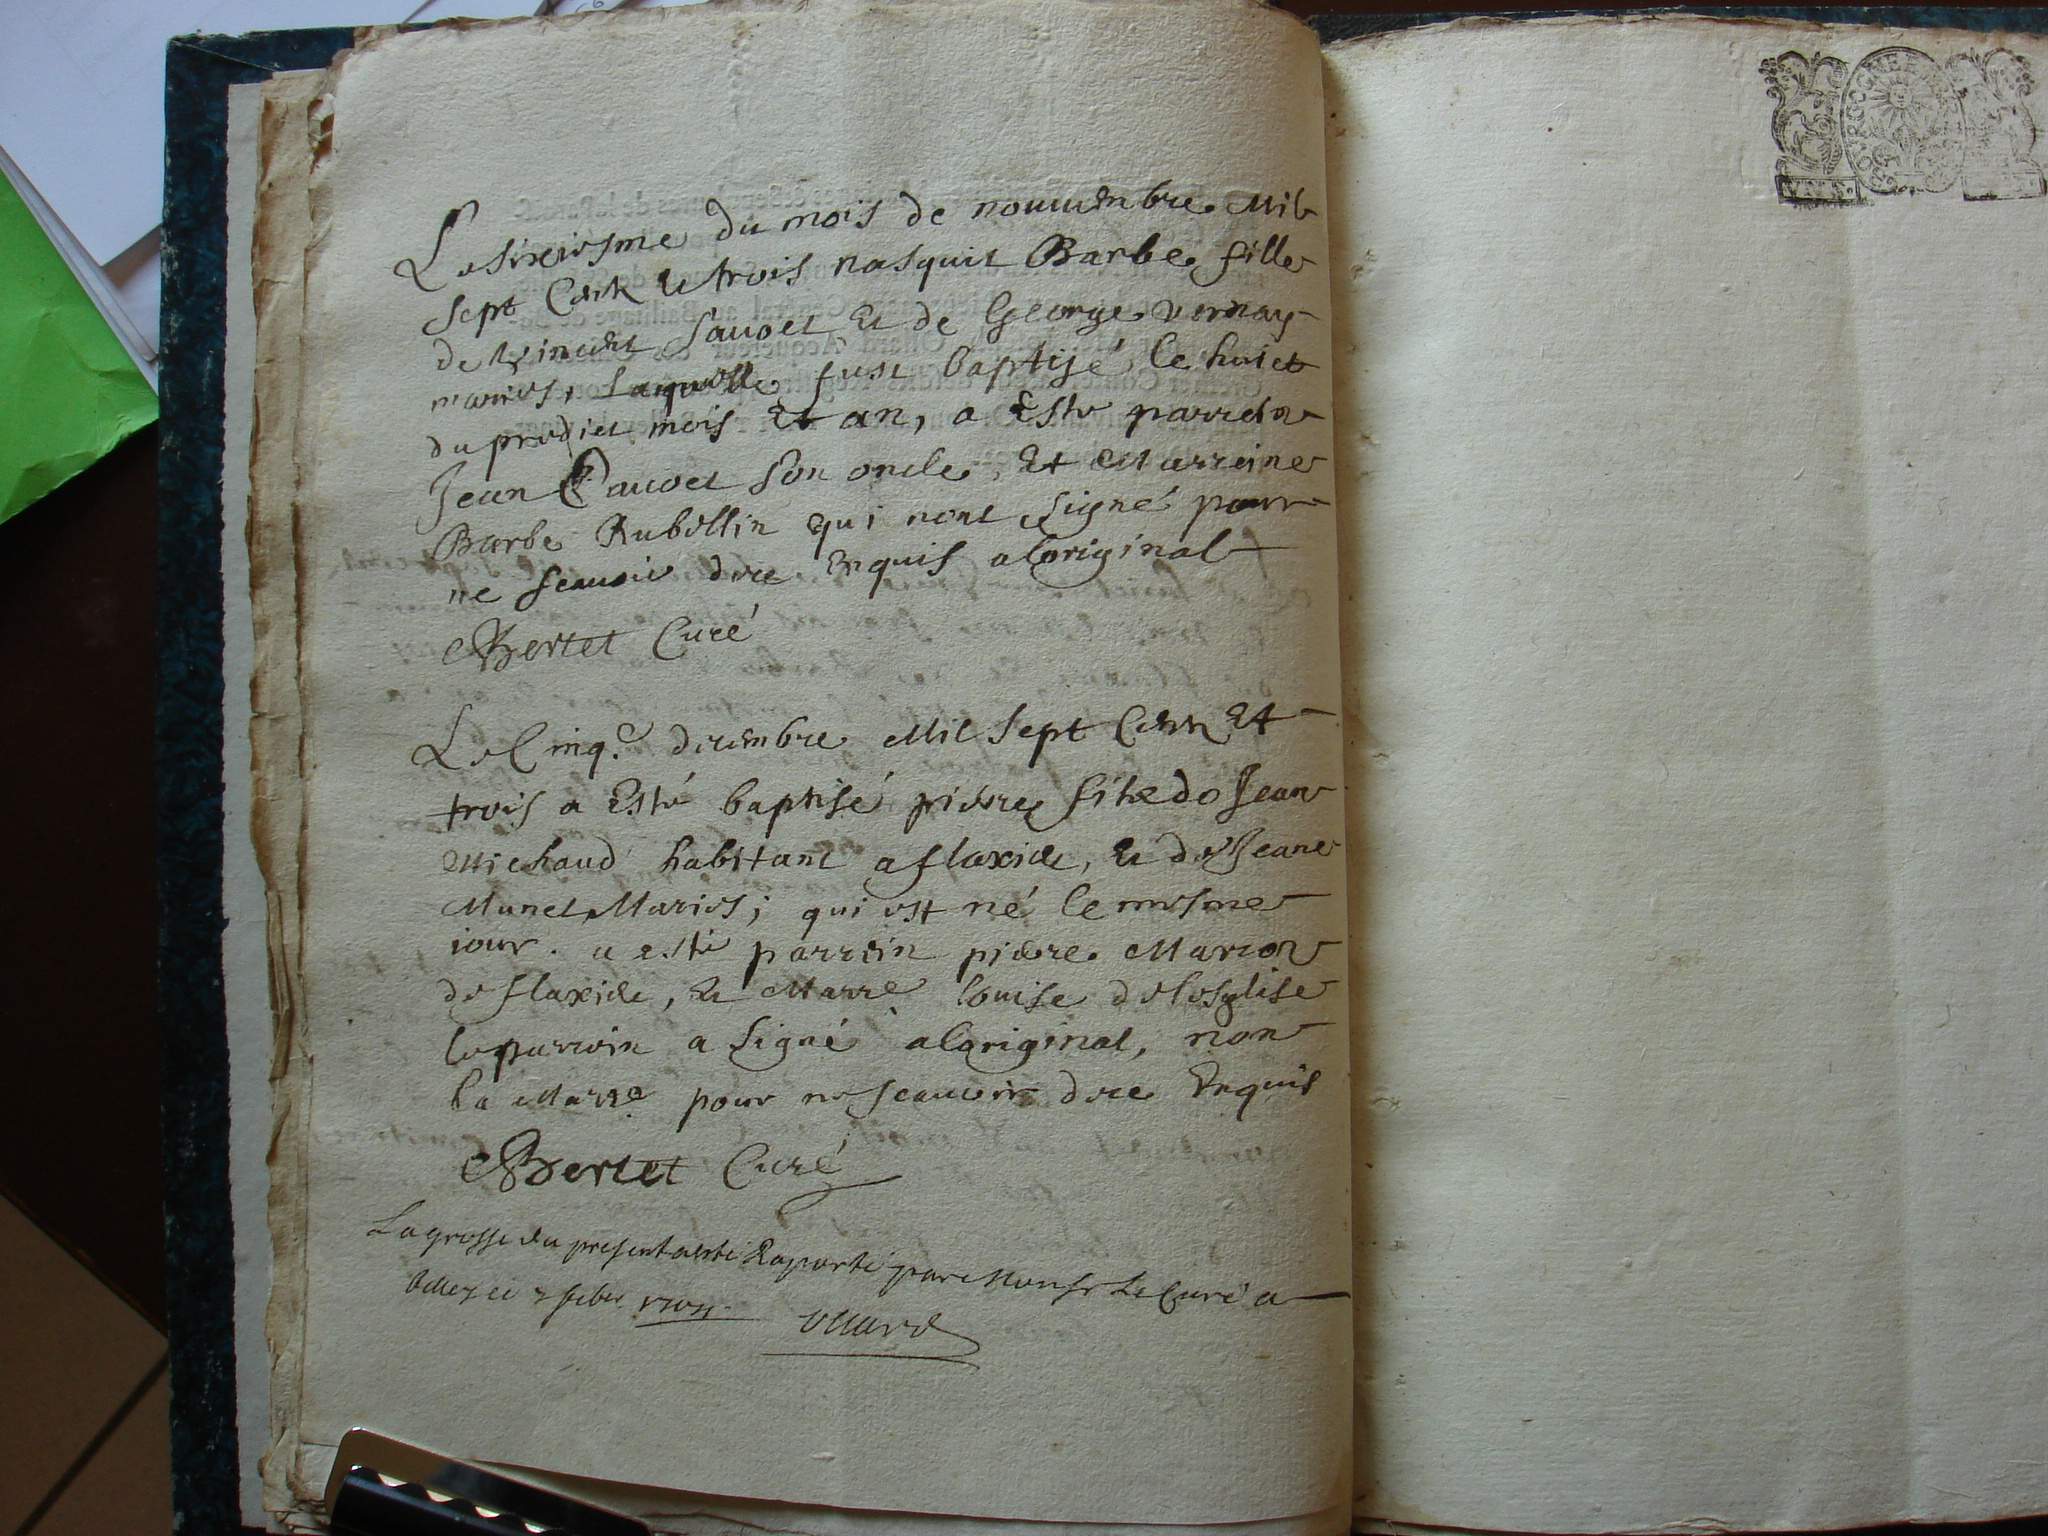 Le sixiesme du mois de nouuembre Mil
sept Cent et trois nasquit Barbe fille
de Vincent Sauoet et de George vernay
maries, Laquelle fust baptisé le huict
du predict mois Et an, a Esté parrein
Jean Sauoet son oncle, Et Marreine
Barbe Rubellin qui nont signé pour
ne scauoir de ce Enquis a loriginal
Bertet Curé
Le Cinq.e decembre Mil sept Cent Et
trois a Esté baptisé pierre fils de Jean
Michaud habitant a flaxieu, et de Jeane
Munet Maries; qui est né le mesme
iour. a esté parrein pierre Marion
de flaxieu, et Marre louise de lesglise
le parrein a signé a loriginal, non
la Marre pour ne scauoir de ce Enquis
Bertet Curé
La grosse du present a esté Raporté par Monsr Le Curé a
Belley ce febr 1704
Ollard
BOURGOGNE